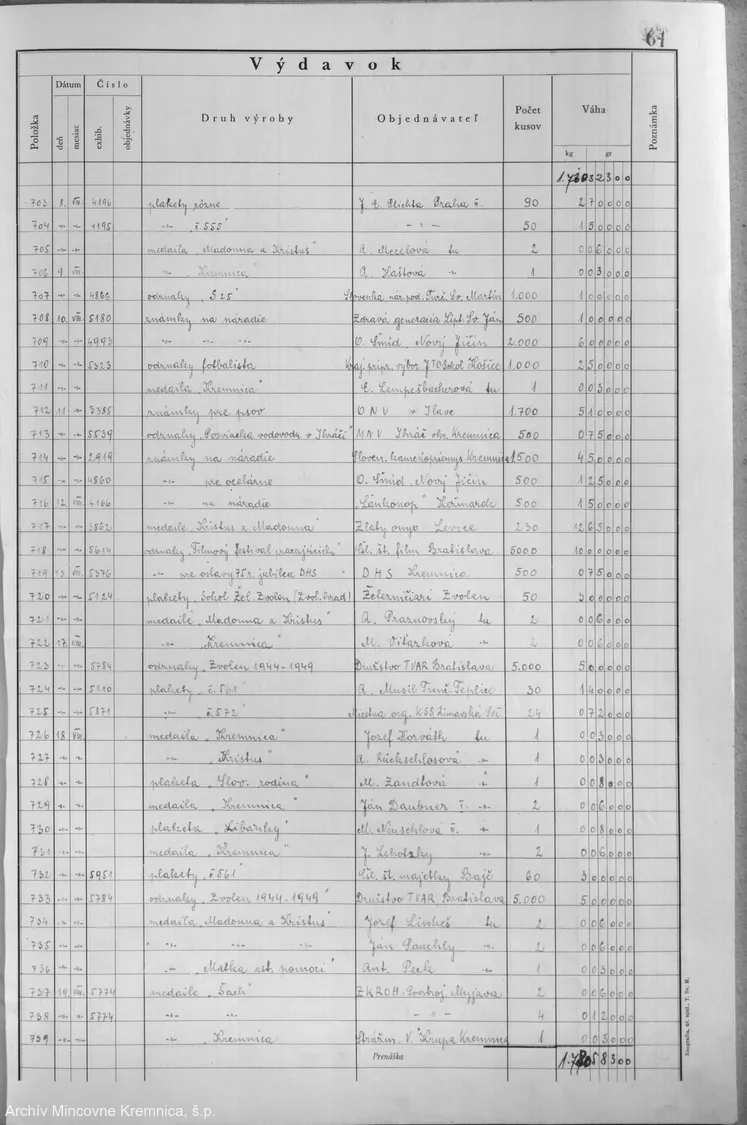 61
Výdavok
Položka Dátum deň mesiac Číslo exhib. objednávky Druh výroby Objednávateľ Počet kusov Váha kg gr Poznámka
703 8. VIII. 4196 plakety rôzne Praha II. 90 2 7 0 0 0 0
704 -"- -"- 4195 -"- "č.555" -"- 50 1 5 0 0 0 0
705 -"- -"- medaila "Madonna a Kristus" A. Mecelová tu 2 0 0 6 0 0 0
706 9. VIII. -"- "Kremnica" A. Haštová -"- 1 0 0 3 0 0 0
707 -"- -"- 4866 odznaky "S 25" Slovenka nár. pod. Turč. Sv. Martin 1.000 1 0 0 0 0 0
708 10. VIII. 5180 známky na náradie Zdravá generacia Lipt. Sv. Ján 500 1 0 0 0 0 0
709 -"- -"- 4993 -"- -"- -"- O. Šmíd, Nový Jičín 2.000 6 0 0 0 0 0
710 -"- -"- 5323 odznaky fotbalista Kraj. prípr. výbor JTO Sokol Košice 1.000 2 5 0 0 0 0
711 -"- -"- medaila "Kremnica" E. Lempesbacherová tu 1 0 0 3 0 0 0
712 11. -"- 3385 známky pre psov O N V v Ilave 1.700 5 1 0 0 0 0
713 -"- -"- 5539 odznaky "Posviacka vodovodu v Ihráči" MNV Ihráč okr. Kremnica 500 0 7 5 0 0 0
714 -"- -"- 2919 známky na náradie Kremnica 1500 4 5 0 0 0 0
715 -"- -"- 4860 -"- pre ocelárne O. Šmíd, Nový Jičín 500 1 2 5 0 0 0
716 12. VIII. 4166 -"- na náradie "Lánkonop" Kežmarok 500 1 5 0 0 0 0
717 -"- -"- 3862 medaile "Kristus a Madonna" Zlatý onyx Levice 230 12 6 5 0 0 0
718 -"- -"- 5614 odznaky "Filmový festival pracujúcich" Čsl. št. film Bratislava 5000 10 0 0 0 0 0
719 13. VIII. 5376 -"- pre oslavy 75 r. jubilea DHS D H S Kremnica 500 0 7 5 0 0 0
720 -"- -"- 5124 plakety "Sokol Žel. Zvolen (Zvol. hrad) Železničiari Zvolen 50 3 0 0 0 0 0
721 -"- -"- medaile "Madonna a Kristus" A. Praznovský tu 2 0 0 6 0 0 0
722 17. VIII. -"- "Kremnica" M. Viťazková -"- 2 0 0 6 0 0 0
723 -"- -"- 5784 odznaky "Zvolen 1944-1949 Družstvo TVAR Bratislava 5.000 5 0 0 0 0 0
724 -"- -"- 5110 plakety "č.561" A. Musil Trenč. Teplice 30 1 4 0 0 0 0
725 -"- -"- 5871 -"- "č.572" Miestna org. KSS, Limavská Seč 24 0 7 2 0 0 0
726 18. VIII. medaila "Kremnica" Jozef Horváth tu 1 0 0 3 0 0 0
727 -"- -"- -"- "Kristus" A. Rückschlosová -"- 1 0 0 3 0 0 0
728 -"- -"- plaketa "Slov. rodina" M. Zandtová -"- 1 0 0 8 0 0 0
729 -"- -"- medaila "Kremnica" Ján Daubner I. -"- 2 0 0 6 0 0 0
730 -"- -"- plaketa "Líbánky" M. Neuschlová II. -"- 1 0 0 8 0 0 0
731 -"- -"- medaila "Kremnica" J. Lehotzky -"- 2 0 0 6 0 0 0
732 -"- -"- 5951 plakety "č.561" Čsl. št. majetky Bajč 60 3 0 0 0 0 0
733 -"- -"- 5784 odznaky "Zvolen 1944-1949" Družstvo TVAR Bratislava 5.000 5 0 0 0 0 0
734 -"- -"- medaila "Madonna a Kristus" Jozef Linkeš tu 2 0 0 6 0 0 0
735 -"- -"- -"- -"- -"- Ján Pauchly -"- 2 0 0 6 0 0 0
736 -"- -"- -"- "Matka ust. pomoci" Ant. Peck -"- 1 0 0 3 0 0 0
737 19. VIII. 5774 medaile "Šach" Myjava 2 0 0 6 0 0 0
738 -"- -"- 5774 -"- -"- -"- 4 0 1 2 0 0 0
739 -"- -"- -"- "Kremnica Strážm. V. Krupa Kremnica 1 0 0 3 0 0 0
Prenáška 58300
Neografia, úč. spol. T. Sv. M.
Archív Mincovne Kremnica, š.p.